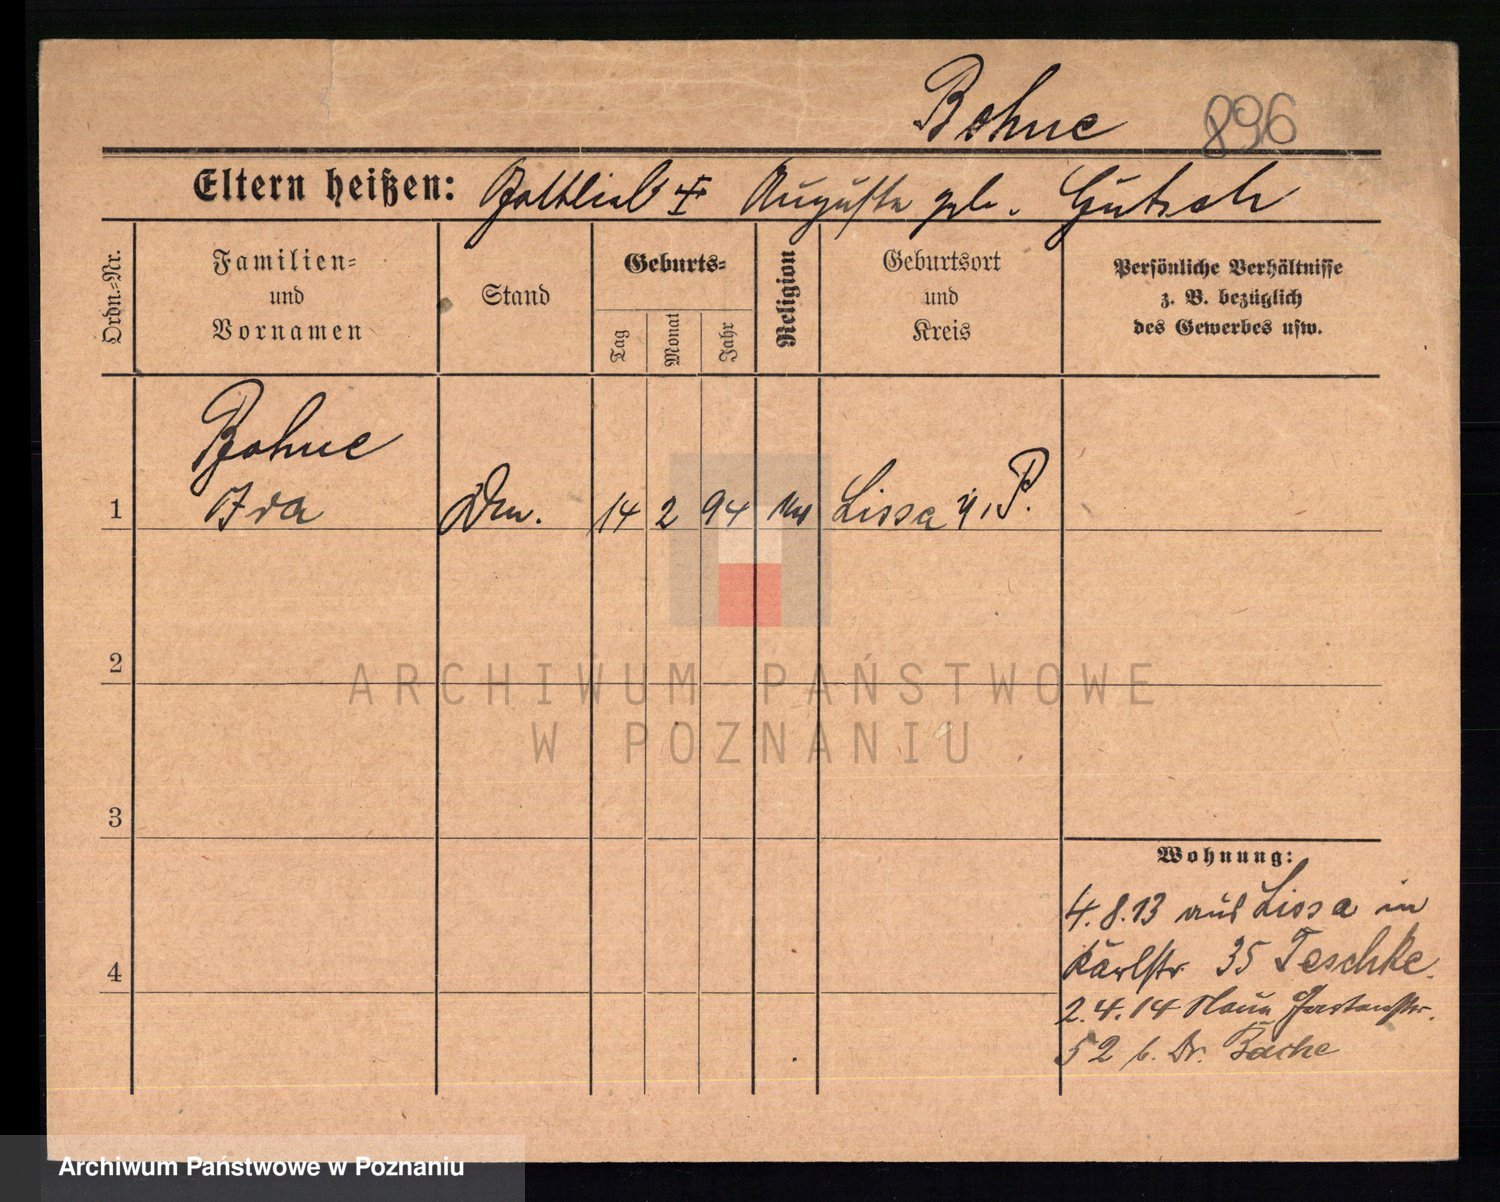 Bohne 896
Eltern heißen: Gottlieb Auguste geb. Gutsch
Ordn.-Nr.
Familien-
und
Vornamen
Stand
Geburts-
Tag
Monat
Jahr
Religion
Geburtsort
und
Kreis
Persönliche Verhältnisse
z. B. bezüglich
des Gewerbes usw.
Bohne
1 Ida 14 2 94 Lissa i. P.
2
3
4
Wohnung:
4.8.13 aus Lissa in
Karlstr 35 Teschke.
2.4.14 Neue Gartenstr.
52 b. Dr. Bache
ARCHIWUM PAŃSTWOWE
W POZNANIU
Archiwum Państwowe w Poznaniu